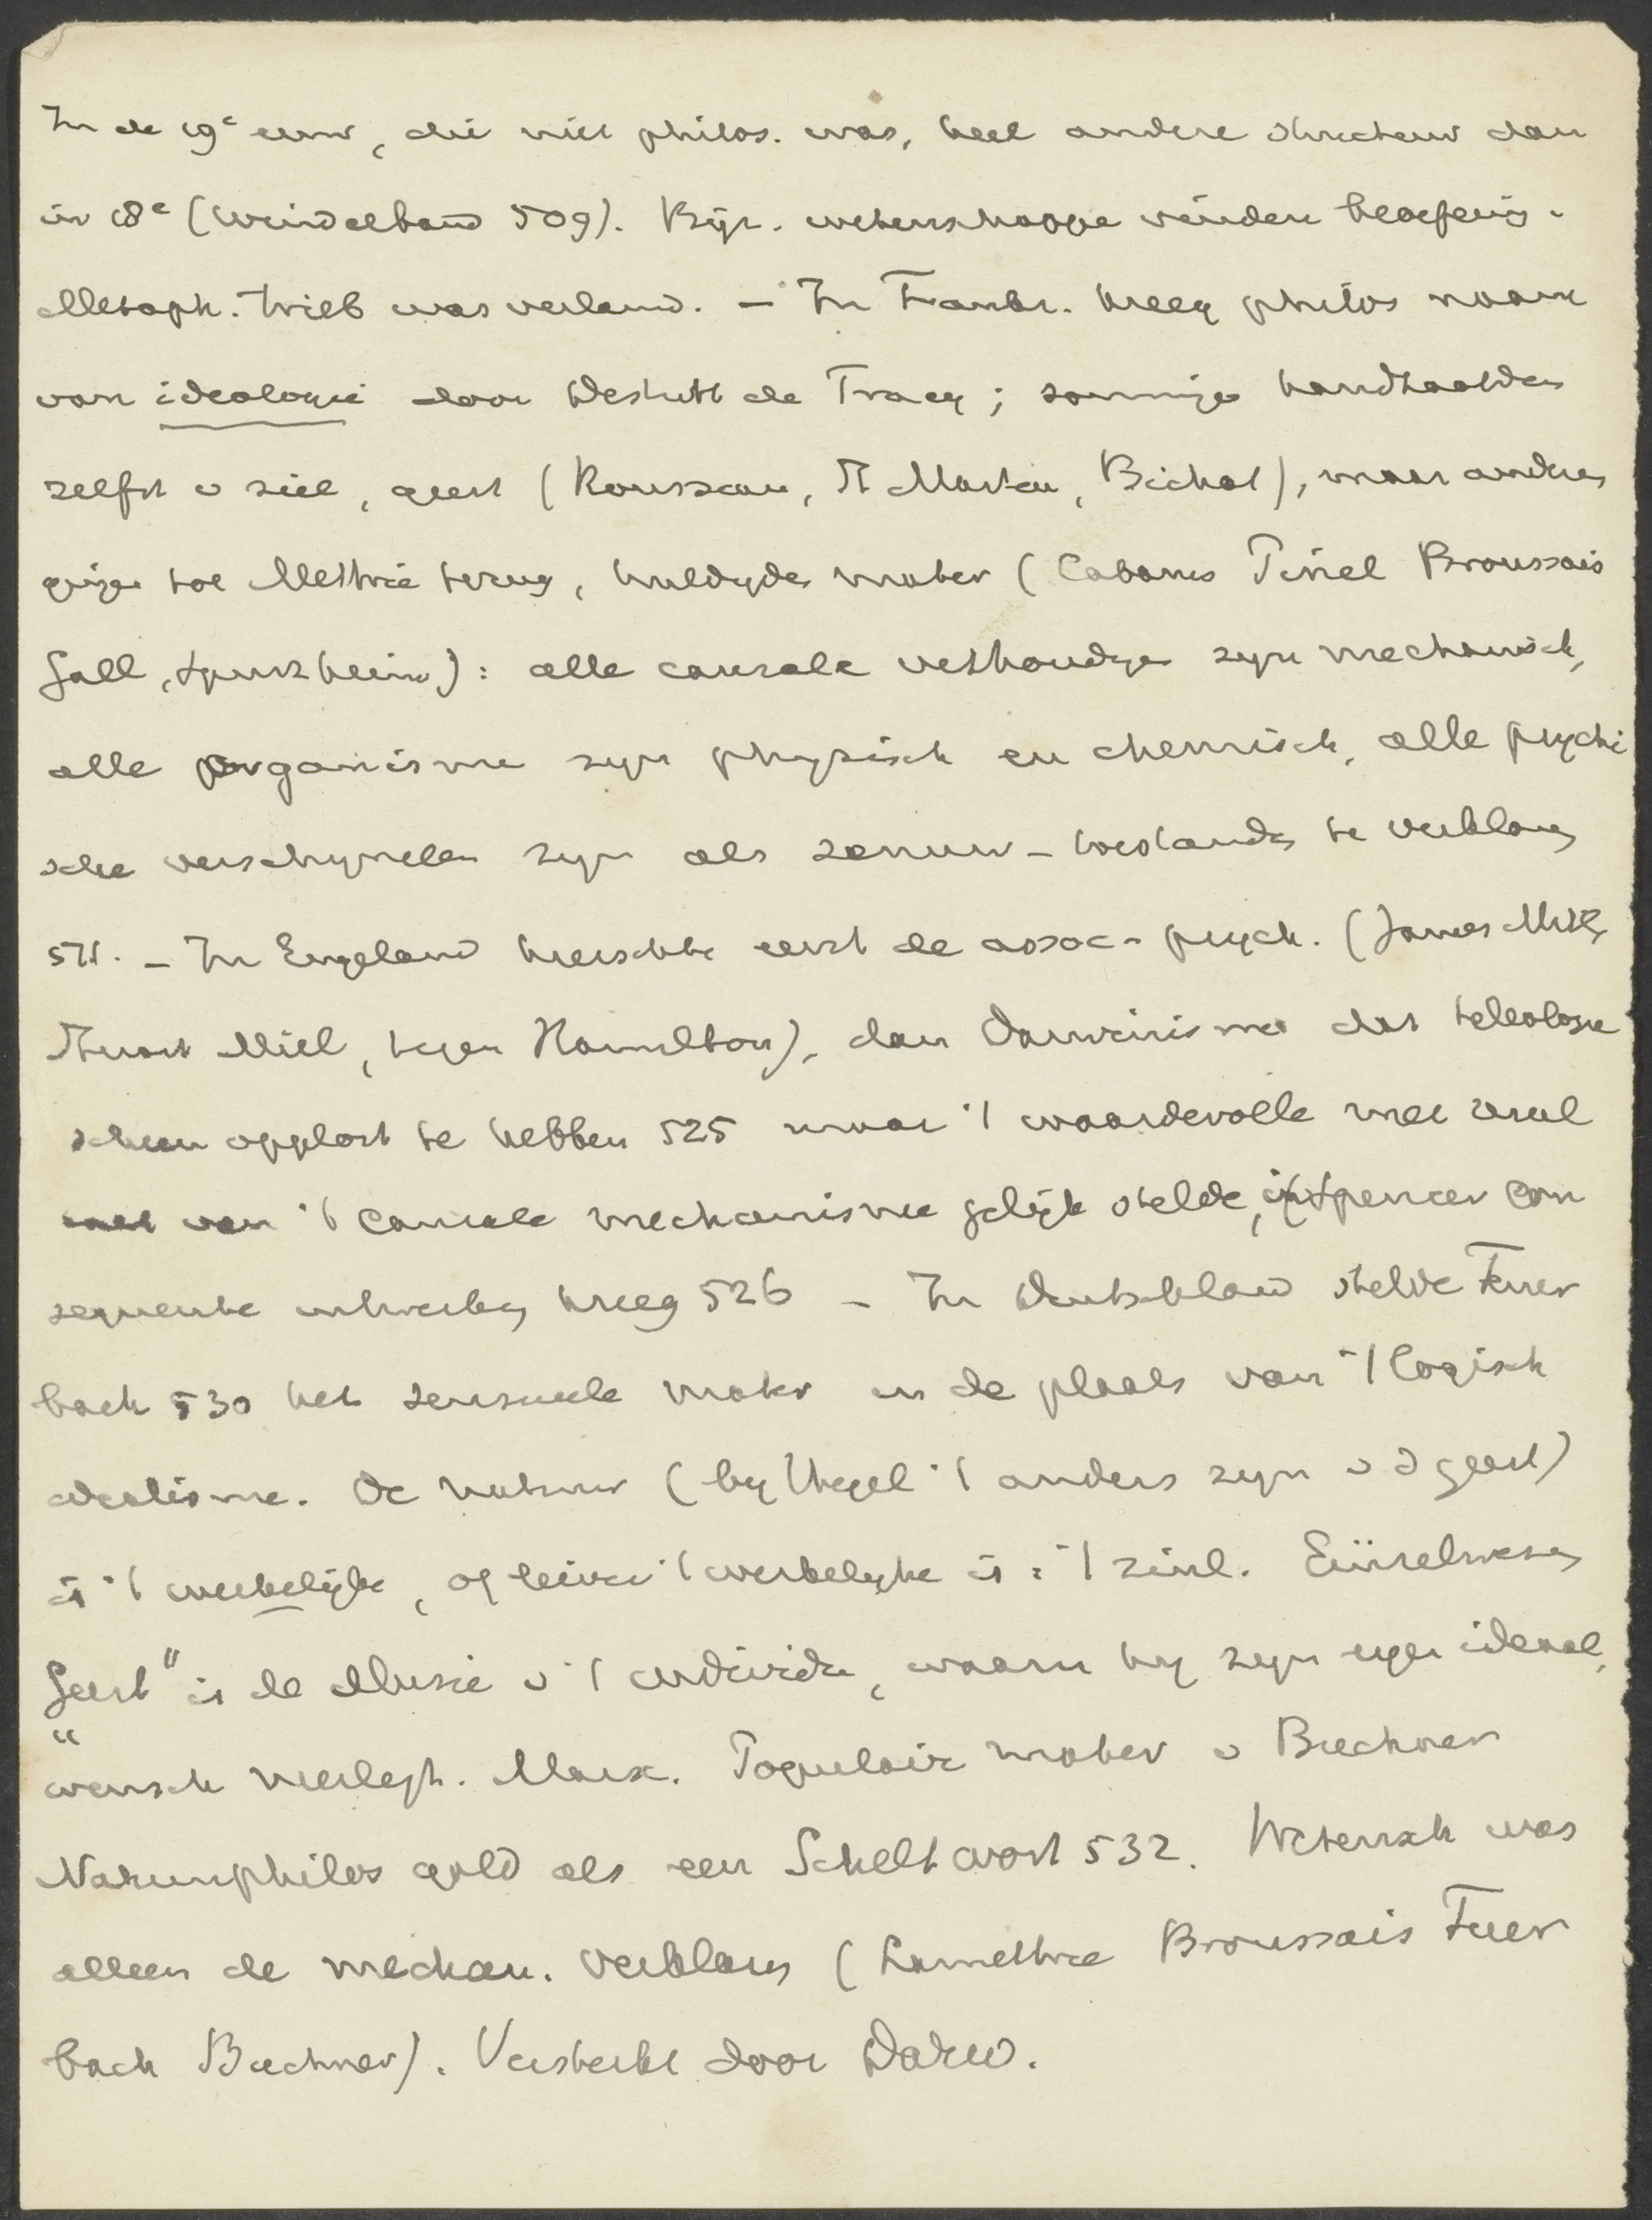 In de 19e eeuw, die niet philos. was, heel andere structuur dan
in 18e (Windelband 509). Bijz. wetenschappe vinden beoefenig.
Metaph. trieb was verlamd. – In Frankr. kreeg philos naam
van ideologie door Destutt de Tracy; sommige handhaafden
zelfst v ziel, geest (Rousseau, St Martin, Bichat), maar andres
gingen tot Mettrie terug, huldigde mater (Cabanis Pinel Broussais
Gall, Spurzheim): alle causale verhoudgn zijn mechanisch,
alle organisme zijn physisch en chemisch, alle psychi
sche verschijnselen zijn als zenuw-toestandn te verklaren
511. – In Engeland heerschte eerst de assoc-psych. (James Mill,
Stuart Mill, tegen Hamilton), dan Darwinisme dat teleologie
scheen opgelost te hebben 525 maar 't waardevolle met resul
van 't causale mechanisme gelijk stelde, Spencer con
sequente uitwerking kreeg 526 – In Duitschland stelde Feuer
bach 530 het sensueele mater in de plaats van 't logisch
idealisme. De natuur (bij Hegel 't anders zijn v d geest)
is 't werkelijke, of liever 't werkelijke is = 't zinl. Einzelwesen
Geest" is de illusie v 't individu, waarin hij zijn eigen ideaal,
"wensch neerlegt. Marx. Populair mater v Buechner
Naturphilos gold als een Scheltwort 532. Wetensch was
alleen de mechan. verklaring (Lamettrie Broussais Feuer
bach Buechner). Versterkt door Darw.